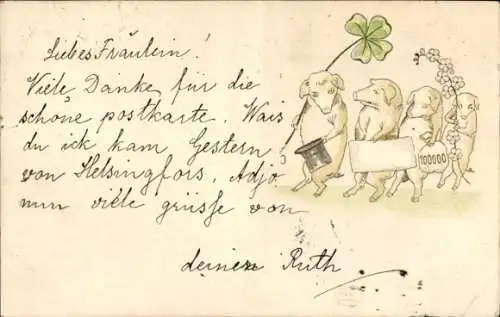 Liebes Fräulein!
Viele Danke für die
schöne postkarte. Wais
du ick kam Gestern
von Helsingfors. Adjo
nun viele grüsse von
deiner Ruth
100000